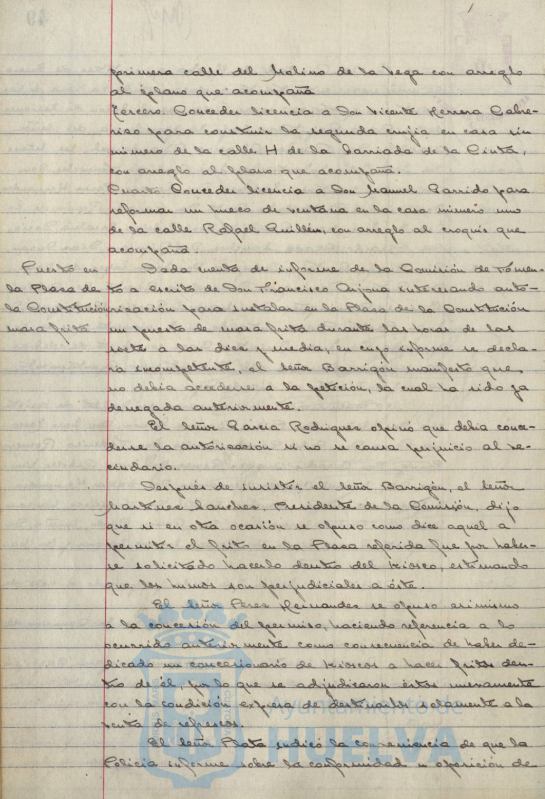 primera calle del Molino de la Vega con arreglo
al plano que acompaña
Tercero. Conceder licencia a Don Vicente Herrera Cabre-
rizo para construir la segunda crujia en casa sin
número de la calle H de la barriada de la Cinta,
con arreglo al plano que acompaña.
Cuarto Conceder licencia a Don Manuel Garrido para
reformar un hueco de ventana en la casa número uno
de la calle Rafael Guillén, con arreglo al croquis que
acompaña.
Puesto en
la Plaza de
la Constitución
masa frita
Dada cuenta de informe de la Comisión de Fomen-
to a escrito de Don Francisco Arjona interesando auto-
rización para instalar en la Plaza de la Constitución
un puesto de masa frita durante las horas de las
siete a las diez y media, en cuyo informe se decla-
ra incompetente, el señor Barrigón manifestó que
no debia accederse a la petición, la cual ha sido ya
denegada anteriormente.
El señor Garcia Rodriguez opinó que debia conce-
derse la autorización si no se causa perjuicio al ve-
cindario.
Después de insistir el señor Barrigón, el señor
Martinez Sanchez, Presidente de la Comisión, dijo
que si en otra ocasión se opuso como dice aquel a
permitir el frito en la Plaza referida fue por haber-
se solicitado hacerlo dentro del kiosco, estimando
que los humos son perjudiciales a éste.
El señor Perez Hernandez se opuso asimismo
a la concesión del permiso, haciendo referencia a lo
ocurrido anteriormente como consecuencia de haber de-
dicado un concesionario de kioscos a hacer fritos den-
tro de él, por lo que se adjudicaron éstos nuevamente
con la condición expresa de destinarlos solamente a la
venta de refrescos.
El señor Plata indicó la conveniencia de que la
Policia informe sobre la conformidad u oposición de
Ayuntamiento de
HUELVA